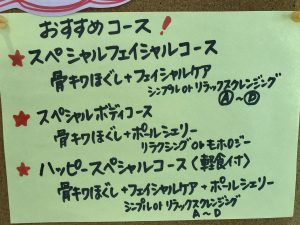 おすすめコース!
★スペシャルフェイシャルコース
骨キワほぐし+フェイシャルケア
シンプル or リラックスクレンジング
Ⓐ～Ⓓ
★スペシャルボディコース
骨キワほぐし+ポールシェリー
リラクシング or モホロジー
★ハッピースペシャルコース(軽食付)
骨キワほぐし+フェイシャルケア+ポールシェリー
シンプル or リラックスクレンジング
A～D